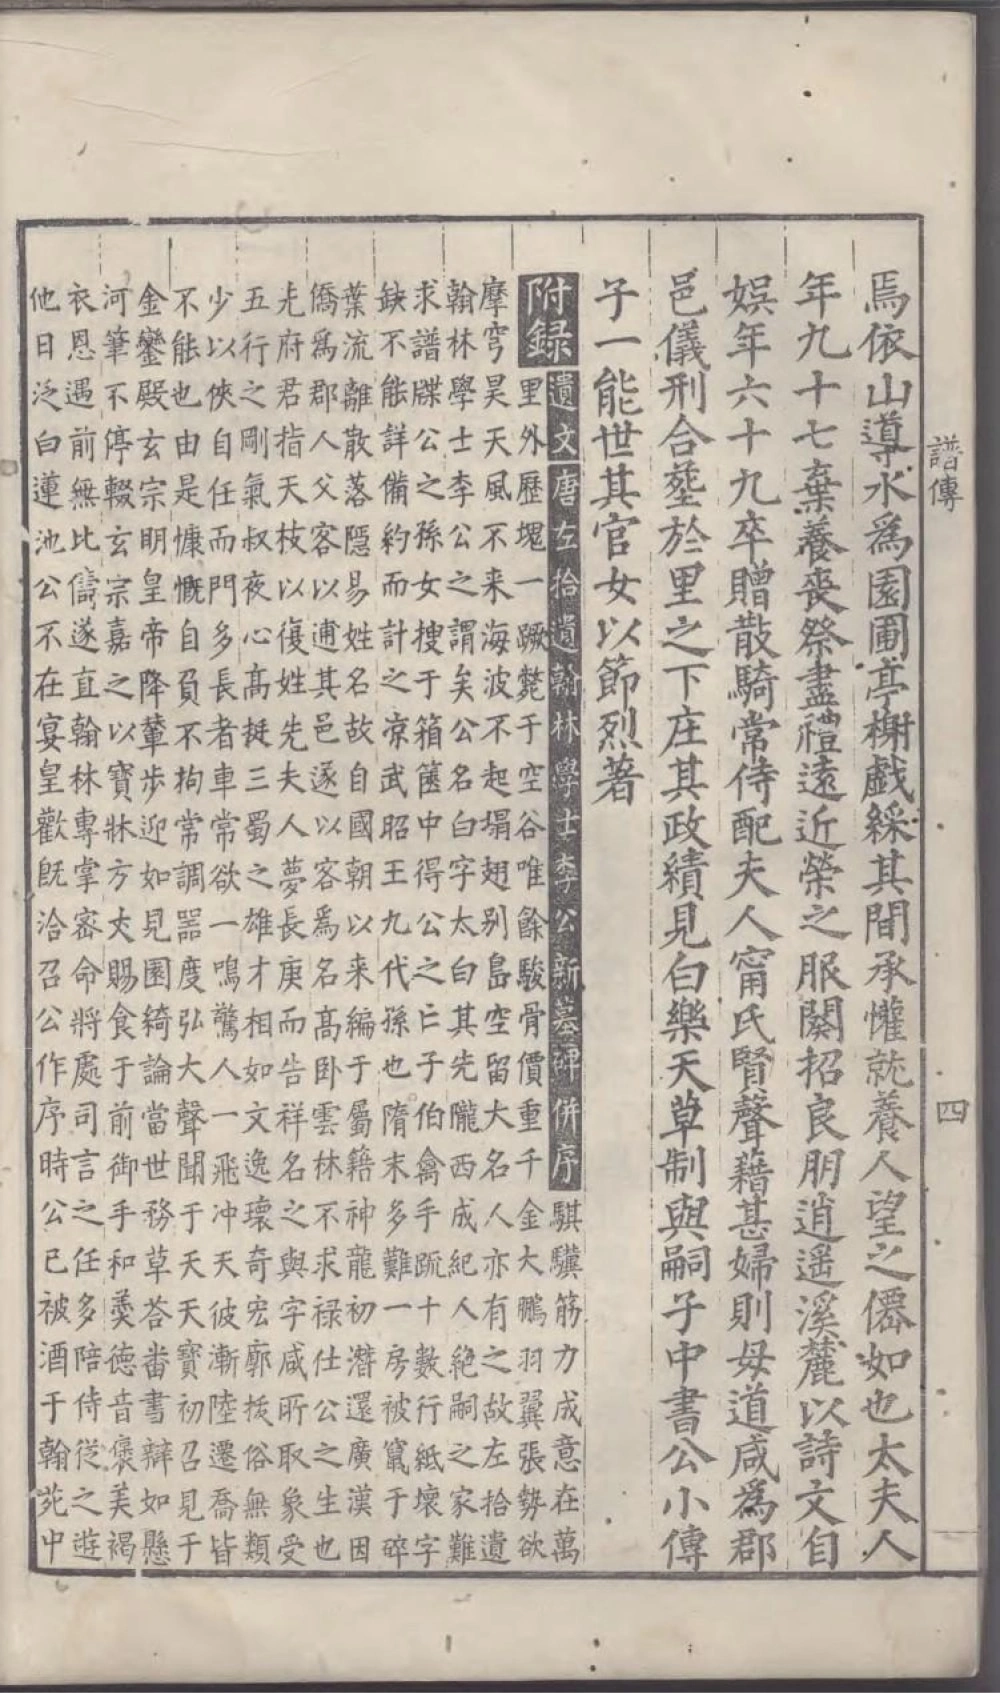 譜傳
四
焉依山導水爲園圃亭榭戲綵其間承懽就養人望之僊如也太夫人
年九十七棄養喪祭盡禮遠近榮之服闋招良朋逍遙溪麓以詩文自
娛年六十九卒贈散騎常侍配夫人甯氏賢聲藉甚婦則母道咸爲郡
邑儀刑合塟於里之下庄其政績見白樂天草制與嗣子中書公小傳
子一能世其官女以節烈著
附録
遺文唐左拾遺翰林學士李公新墓碑併序騏驥筋力成意在萬
里外歷塊一蹶斃于空谷唯餘駿骨價重千金大鵬羽翼張勢欲
摩穹昊天風不来海波不起塌翅别島空留大名人亦有之故左拾遺
翰林學士李公之謂矣公名白字太白其先隴西成紀人絶嗣之家難
求譜牒公之孫女搜于箱篋中得公之亡子伯禽手䟽十數行紙壞字
缺不能詳備約而計之凉武昭王九代孫也隋末多難一房被竄于碎
葉流離散落隱易姓名故自國朝以来編于屬籍神龍初潜還廣漢因
僑爲郡人父客以逋其邑遂以客爲名高卧雲林不求禄仕公之生也
先府君指天枝以復姓先夫人夢長庚而告祥名之與字咸所取象受
五行之剛氣叔夜心高挺三蜀之雄才相如文逸瓌奇宏廓拔俗無類
少以俠自任而門多長者車常欲一鳴驚人一飛冲天彼漸陸遷喬皆
不能也由是慷慨自負不拘常調噐度弘大聲聞于天天寶初召見于
金鑾殿玄宗明皇帝降輦步迎如見園綺論當世務草荅畨書辯如懸
河筆不停輟玄宗嘉之以寶牀方丈賜食于前御手和羮德音褒美褐
衣恩遇前無比儔遂直翰林專掌密命將處司言之任多陪侍從之遊
他日泛白蓮池公不在宴皇歡既洽召公作序時公已被酒于翰苑中